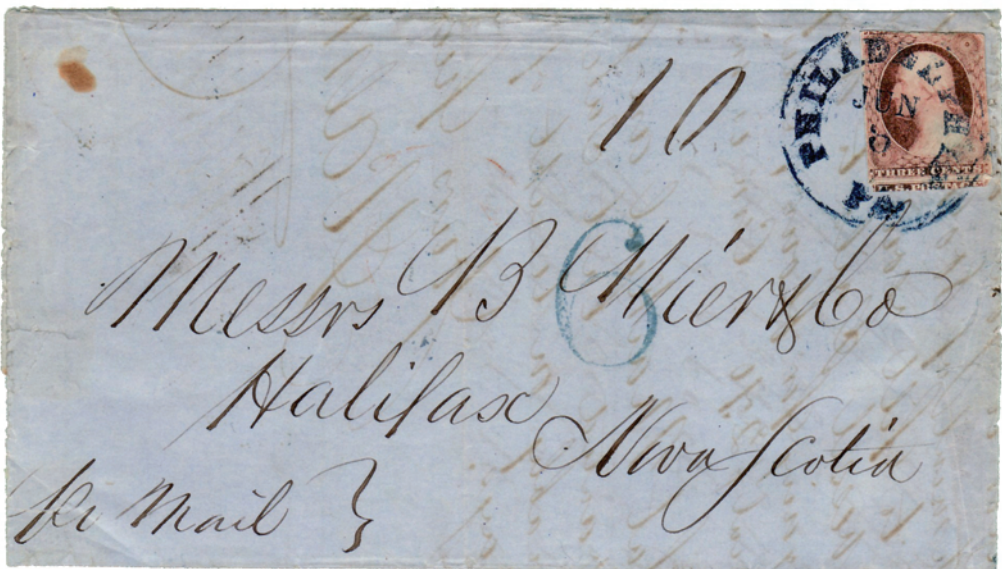 10
PHILADELPHIA
JUN
PA
THREE CENTS
U.S. POSTAGE
6
Messrs B Wier & Co
Halifax
Nova Scotia
Mail